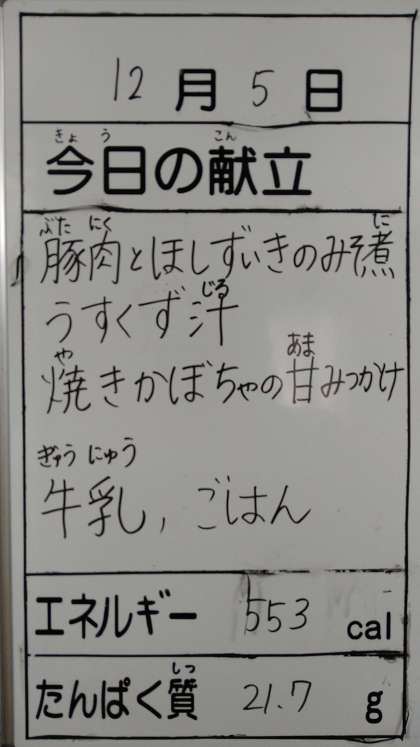 12月5日
きょう こん
今日の献立
ぶた にく に
豚肉とほしずいきのみそ煮
じる
うすくず汁
や あま
焼きかぼちゃの甘みつかけ
ぎゅう にゅう
牛乳, ごはん
エネルギー 553 cal
しつ
たんぱく質 21.7 g